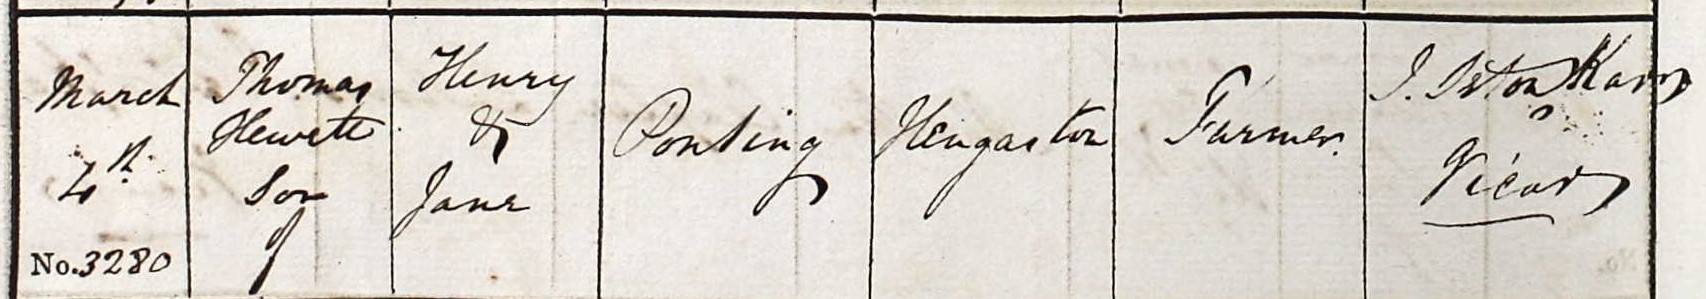 March
4th
No. 3280
Thomas
Hewett
Son
of
Henry
&
Jane
Ponting
Hengaston
Farmer
J.
Vicar